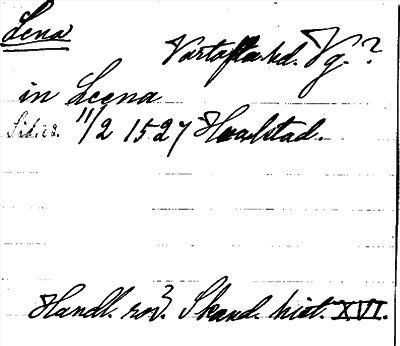 Lena
Vartofta hd. Vg.?
in Leena
11/2 1527 Hvalstad.
Handl. rör. Skand. hist. XVI.